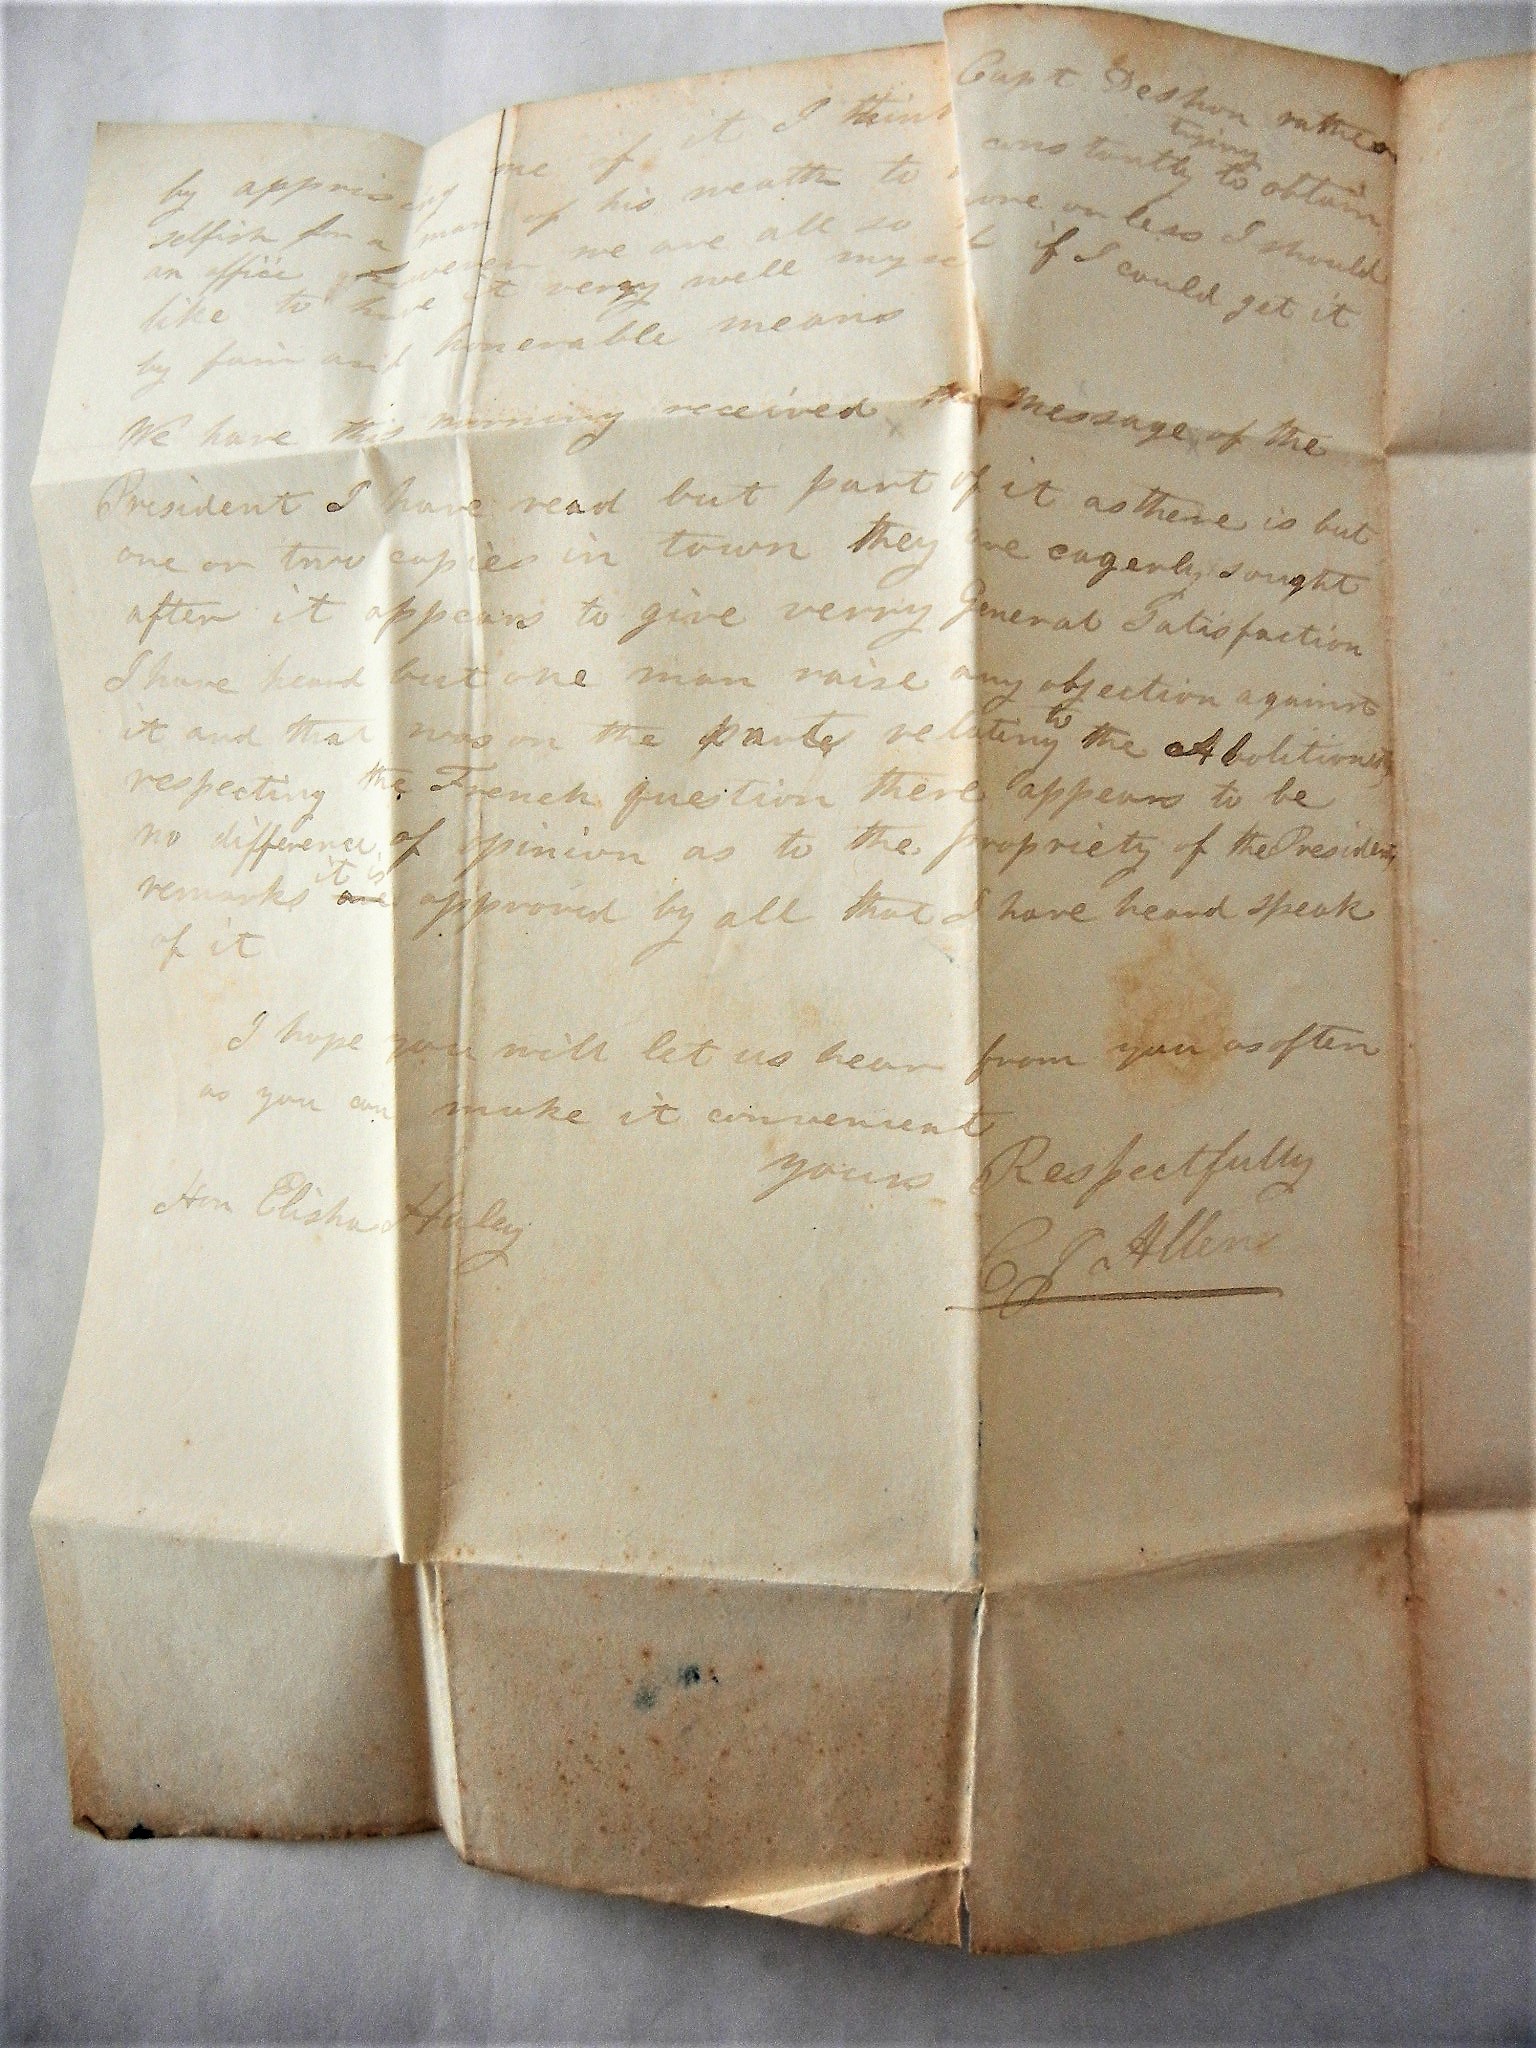 by apprising me of it I think Capt Deshon rather
selfish for a man of his weath to constantly trying to obtain
an office however we are all so more or less I should
like to have it verry well myself if I could get it
by fair and honerable means
We have this morning received the Message of the
President I have read but part of it as there is but
one or two copies in town they are eagerly sought
after it appears to give verry General Satisfaction
I have heard but one man raise any objection against
it and that was on the parts relating to the Abolitionists
respecting the French question there appears to be
no difference of opinion as to the propriety of the Presidents
remarks it is approved by all that I have heard speak
of it
I hope you will let us hear from you as often
as you can make it convenient
yours Respectfully
Hon Elisha Haley
C J Allen